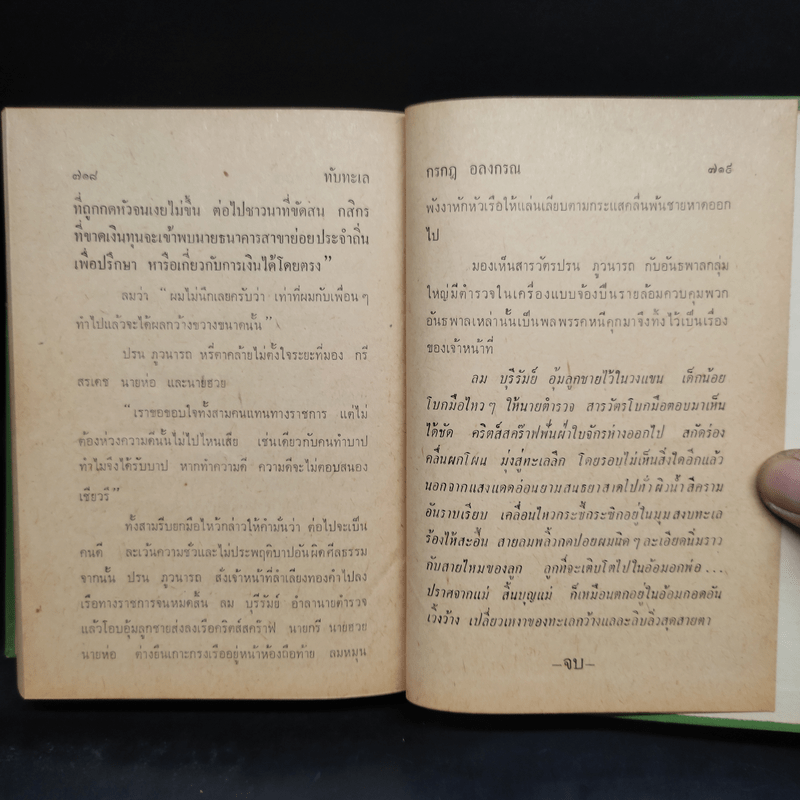 ๗๑๘ ทับทะเล
ที่ถูกกดหัวจนเงยไม่ขึ้น ต่อไปชาวนาที่ขัดสน กสิกร
ที่ขาดเงินทุนจะเข้าพบนายธนาคารสาขาย่อยประจำถิ่น
เพื่อปรึกษา หารือเกี่ยวกับการเงินได้โดยตรง”
ลมว่า “ผมไม่นึกเลยครับว่า เท่าที่ผมกับเพื่อนๆ
ทำไปแล้วจะได้ผลกว้างขวางขนาดนั้น”
ปรน ภูวนารถ หรี่ตาคล้ายไม่ตั้งใจระยะที่มอง กรี
สรเดช นายห่อ และนายฮวย
“เราขอขอบใจทั้งสามคนแทนทางราชการ แต่ไม่
ต้องห่วงความดีนั้นไม่ไปไหนเสีย เช่นเดียวกับคนทำบาป
ทำไมจึงได้รับบาป หากทำความดี ความดีจะไม่ตอบสนอง
เชียวรึ”
ทั้งสามรีบยกมือไหว้กล่าวให้คำมั่นว่า ต่อไปจะเป็น
คนดี ละเว้นความชั่วและไม่ประพฤติบาปอันผิดศีลธรรม
จากนั้น ปรน ภูวนารถ สั่งเจ้าหน้าที่ลำเลียงทองคำไปลง
เรือทางราชการจนหมดสิ้น ลม บุรีรัมย์ อำลานายตำรวจ
แล้วโอบอุ้มลูกชายส่งลงเรือคริตส์สคร๊าฟ นายกรี นายฮวย
นายห่อ ต่างยืนเกาะกรงเรืออยู่หน้าห้องถือท้าย ลมหมุน
กรกฎ อลงกรณ ๗๑๙
พังงาหักหัวเรือให้แล่นเลียบตามกระแสคลื่นพ้นชายหาดออก
ไป
มองเห็นสารวัตรปรน ภูวนารถ กับอันธพาลกลุ่ม
ใหญ่มีตำรวจในเครื่องแบบจ้องปืนรายล้อมควบคุมพวก
อันธพาลเหล่านั้นเป็นพลพรรคหนีคุกมาจึงทิ้งไว้เป็นเรื่อง
ของเจ้าหน้าที่
ลม บุรีรัมย์ อุ้มลูกชายไว้ในวงแขน เด็กน้อย
โบกมือไหวๆ ให้นายตำรวจ สารวัตรโบกมือตอบมาเห็น
ได้ชัด คริตส์สคร๊าฟฟันฝ่าใบจักรห่างออกไป สกัดร่อง
คลื่นผกโผน มุ่งสู่ทะเลลึก โดยรอบไม่เห็นสิ่งใดอีกแล้ว
นอกจากแสงแดดอ่อนยามสนธยาสาดไปทั่วผิวน้ำสีคราม
อันราบเรียบ เคลื่อนไหวกระซี้กระซิกอยู่ในมุมสงบทะเล
ร้องไห้สะอื้น สายลมพลิ้วกดปอยผมนิดๆ ละเอียดนิ่มราว
กับสายไหมของลูก ลูกที่จะเติบโตไปในอ้อมอกพ่อ...
ปราศจากแม่ สิ้นบุญแม่ ก็เหมือนตกอยู่ในอ้อมกอดอัน
เวิ้งว้าง เปลี่ยวเหงาของทะเลกว้างแลละลิบลิ่วสุดสายตา
–จบ–